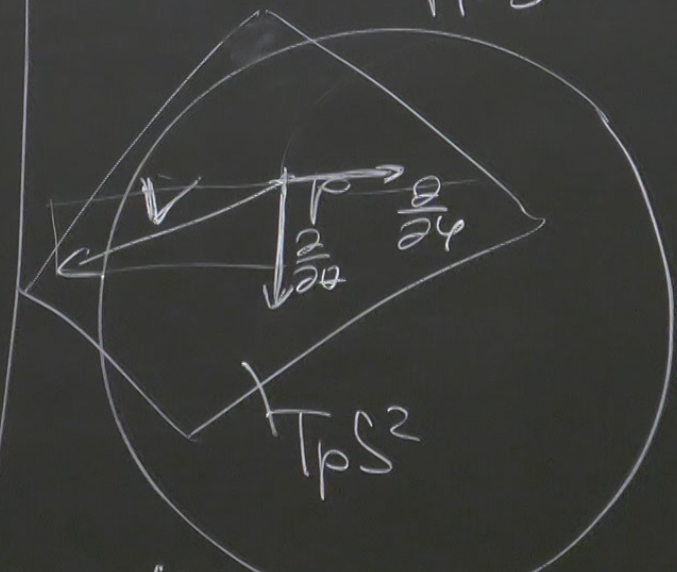 V
p
∂/∂φ
∂/∂θ
TpS²